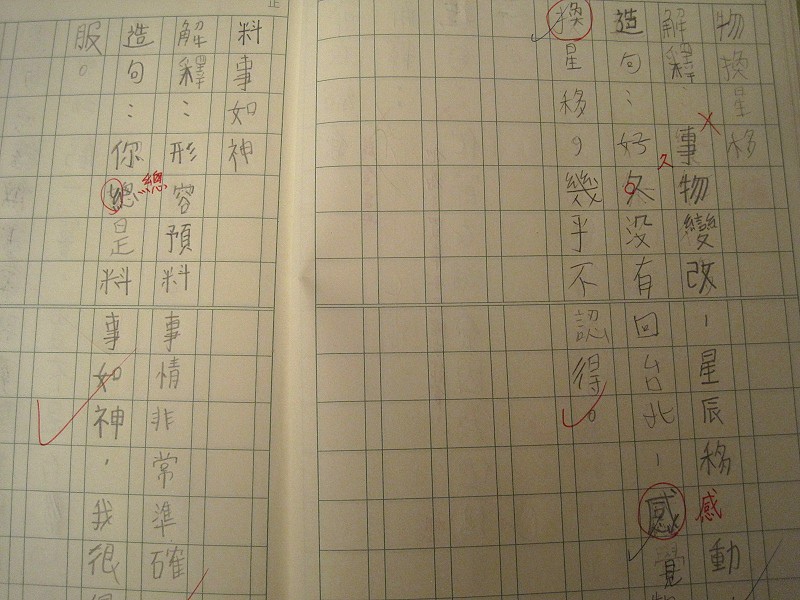 物換星移
解釋：事物變改，星辰移動
久
感
造句：好久没有回台北，感覺物
換星移，幾乎不認得。
料事如神
解釋：形容預料事情非常準確
總
造句：你總是料事如神，我很
服。